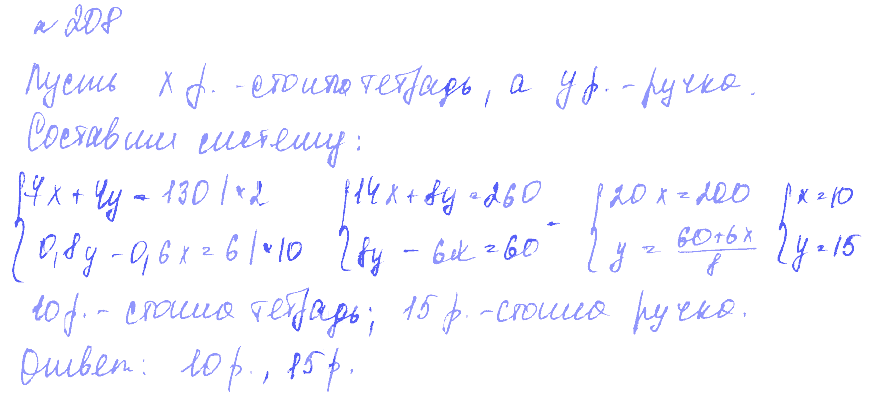 № 208
Пусть x р. - стоила тетрадь, а y р. - ручка.
Составим систему:
{7x + 4y = 130 | ×2 {14x + 8y = 260 - {20x = 200 {x = 10
{0,8y - 0,6x = 6 | ×10 {8y - 6x = 60 {y = (60+6x)/8 {y = 15
10 р. - стоила тетрадь; 15 р. - стоила ручка.
Ответ: 10 р., 15 р.